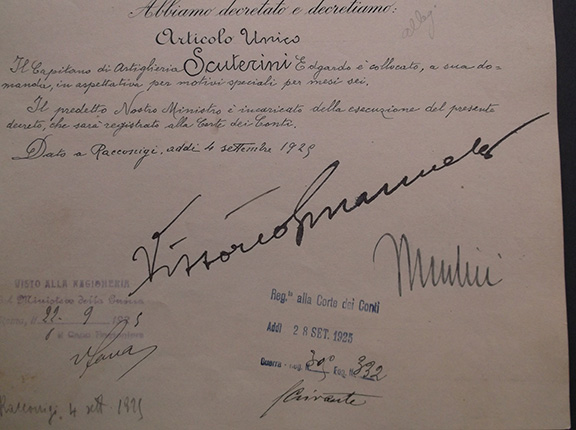 Abbiamo decretato e decretiamo:
Articolo Unico
Il Capitano di Artiglieria Scuterini Edgardo è collocato, a sua do-
manda, in aspettativa per motivi speciali per mesi sei.
Il predetto Nostro Ministro è incaricato della esecuzione del presente
decreto, che sarà registrato alla Corte dei Conti.
Dato a Racconigi, addì 4 settembre 1925
Vittorio Emanuele
VISTO ALLA RAGIONERIA
del Ministero della Guerra
22-9 1925
Reg.to alla Corte dei Conti
Addì 28 SET. 1925
Guerra - Reg. N. 39° Fog. N. 332
Racconigi, 4 sett 1925